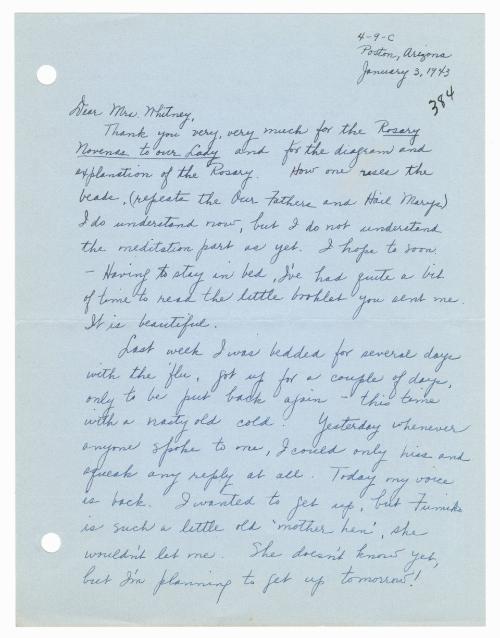 4-9-C
Poston, Arizona
January 3, 1943
384
Dear Mrs. Whitney,
Thank you very, very much for the Rosary
Novenas to our Lady and for the diagram and
explanation of the Rosary. How one uses the
beads, (repeate the Our Fathers and Hail Marys)
I do understand now, but I do not understand
the meditation part as yet. I hope to soon.
- Having to stay in bed, I've had quite a bit
of time to read the little booklet you sent me.
It is beautiful.
Last week I was bedded for several days
with the flu, got up for a couple of days,
only to be put back again - this time
with a nasty old cold. Yesterday whenever
anyone spoke to me, I could only hiss and
squeak any reply at all. Today my voice
is back. I wanted to get up, but Fumiko
is such a little old 'mother hen', she
wouldn't let me. She doesn't know yet,
but I'm planning to get up tomorrow!